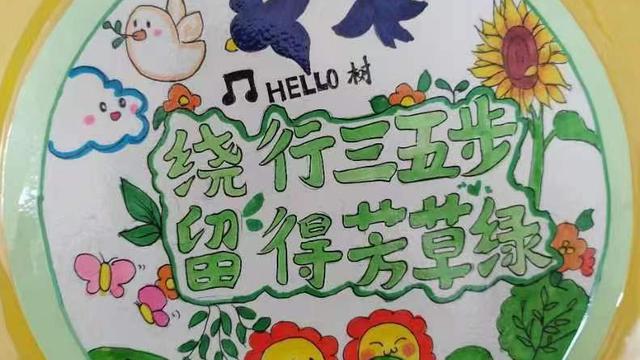 HELLO 树
绕行三五步
留得芳草绿